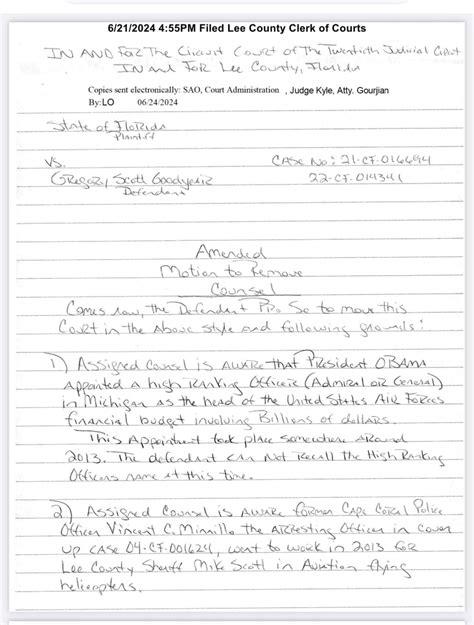 6/21/2024 4:55PM Filed Lee County Clerk of Courts
IN AND FOR The Circuit Court of The Twentieth Judicial Circuit
IN and FOR Lee County, Florida
Copies sent electronically: SAO, Court Administration , Judge Kyle, Atty. Gourjian
By:LO 06/24/2024
State of Florida
Plaintiff
vs. CASE No: 21-CF-016694
Gregory Scott 22-CF-014341
Defendant
Amended
Motion to Remove
Counsel
Comes now, the Defendant Pro Se to move this
Court in the Above style and following grounds:
1) Assigned Counsel is AWARE that President OBAMA
Appointed a high Ranking Officer (Admiral or General)
in Michigan as the head of the United States AIR Forces
financial budget involving Billions of dollars.
This Appointment took place somewhere Around
2013. The defendant can Not Recall the High Ranking
Officers name at this time.
2) Assigned Counsel is AWARE former Cape Coral Police
Officer Vincent C. the Arresting Officer in cover
up case 04-CF-001624, went to work in 2013 for
Lee County Sheriff Mike Scott in Aviation flying
helicopters.